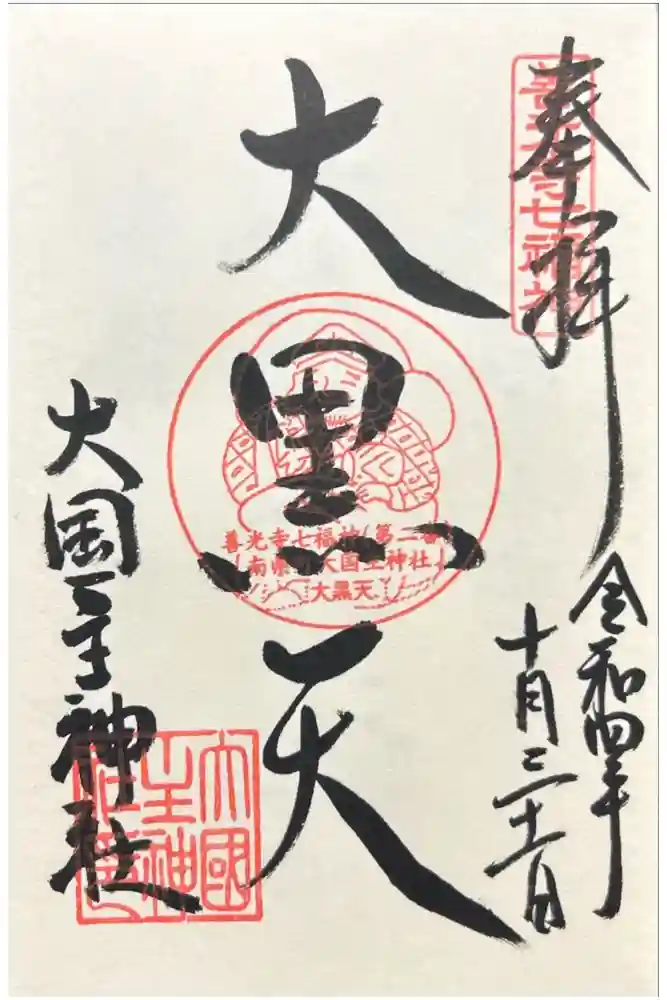 奉拝
善光寺七福神
令和四年
十月三十一日
大黒天
善光寺七福神（第二番）
（南県町大国主神社）
大黒天
大国主神社
大國
主神